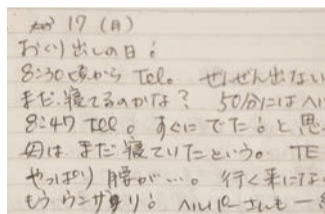 17 (月)
おくり出しの日!
8:30頃から Tel。ぜんぜん出ない
まだ、寝てるのかな? 50分にはヘル
8:47 Tel。すぐにでた!と思
母は まだ寝ていたという。TE
やっぱり 腰が…。行く気にな
もう ウンザリ! ヘルパーさんも一